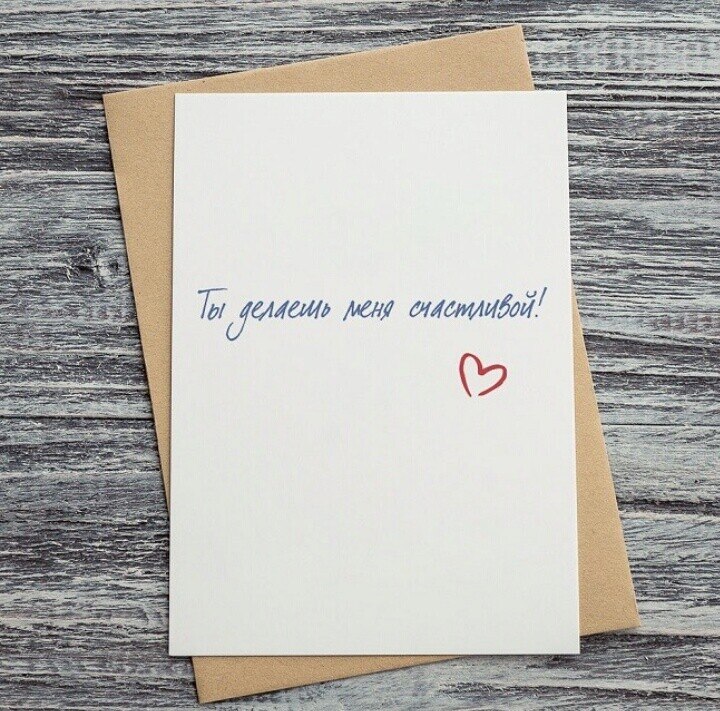 Ты делаешь меня счастливой!